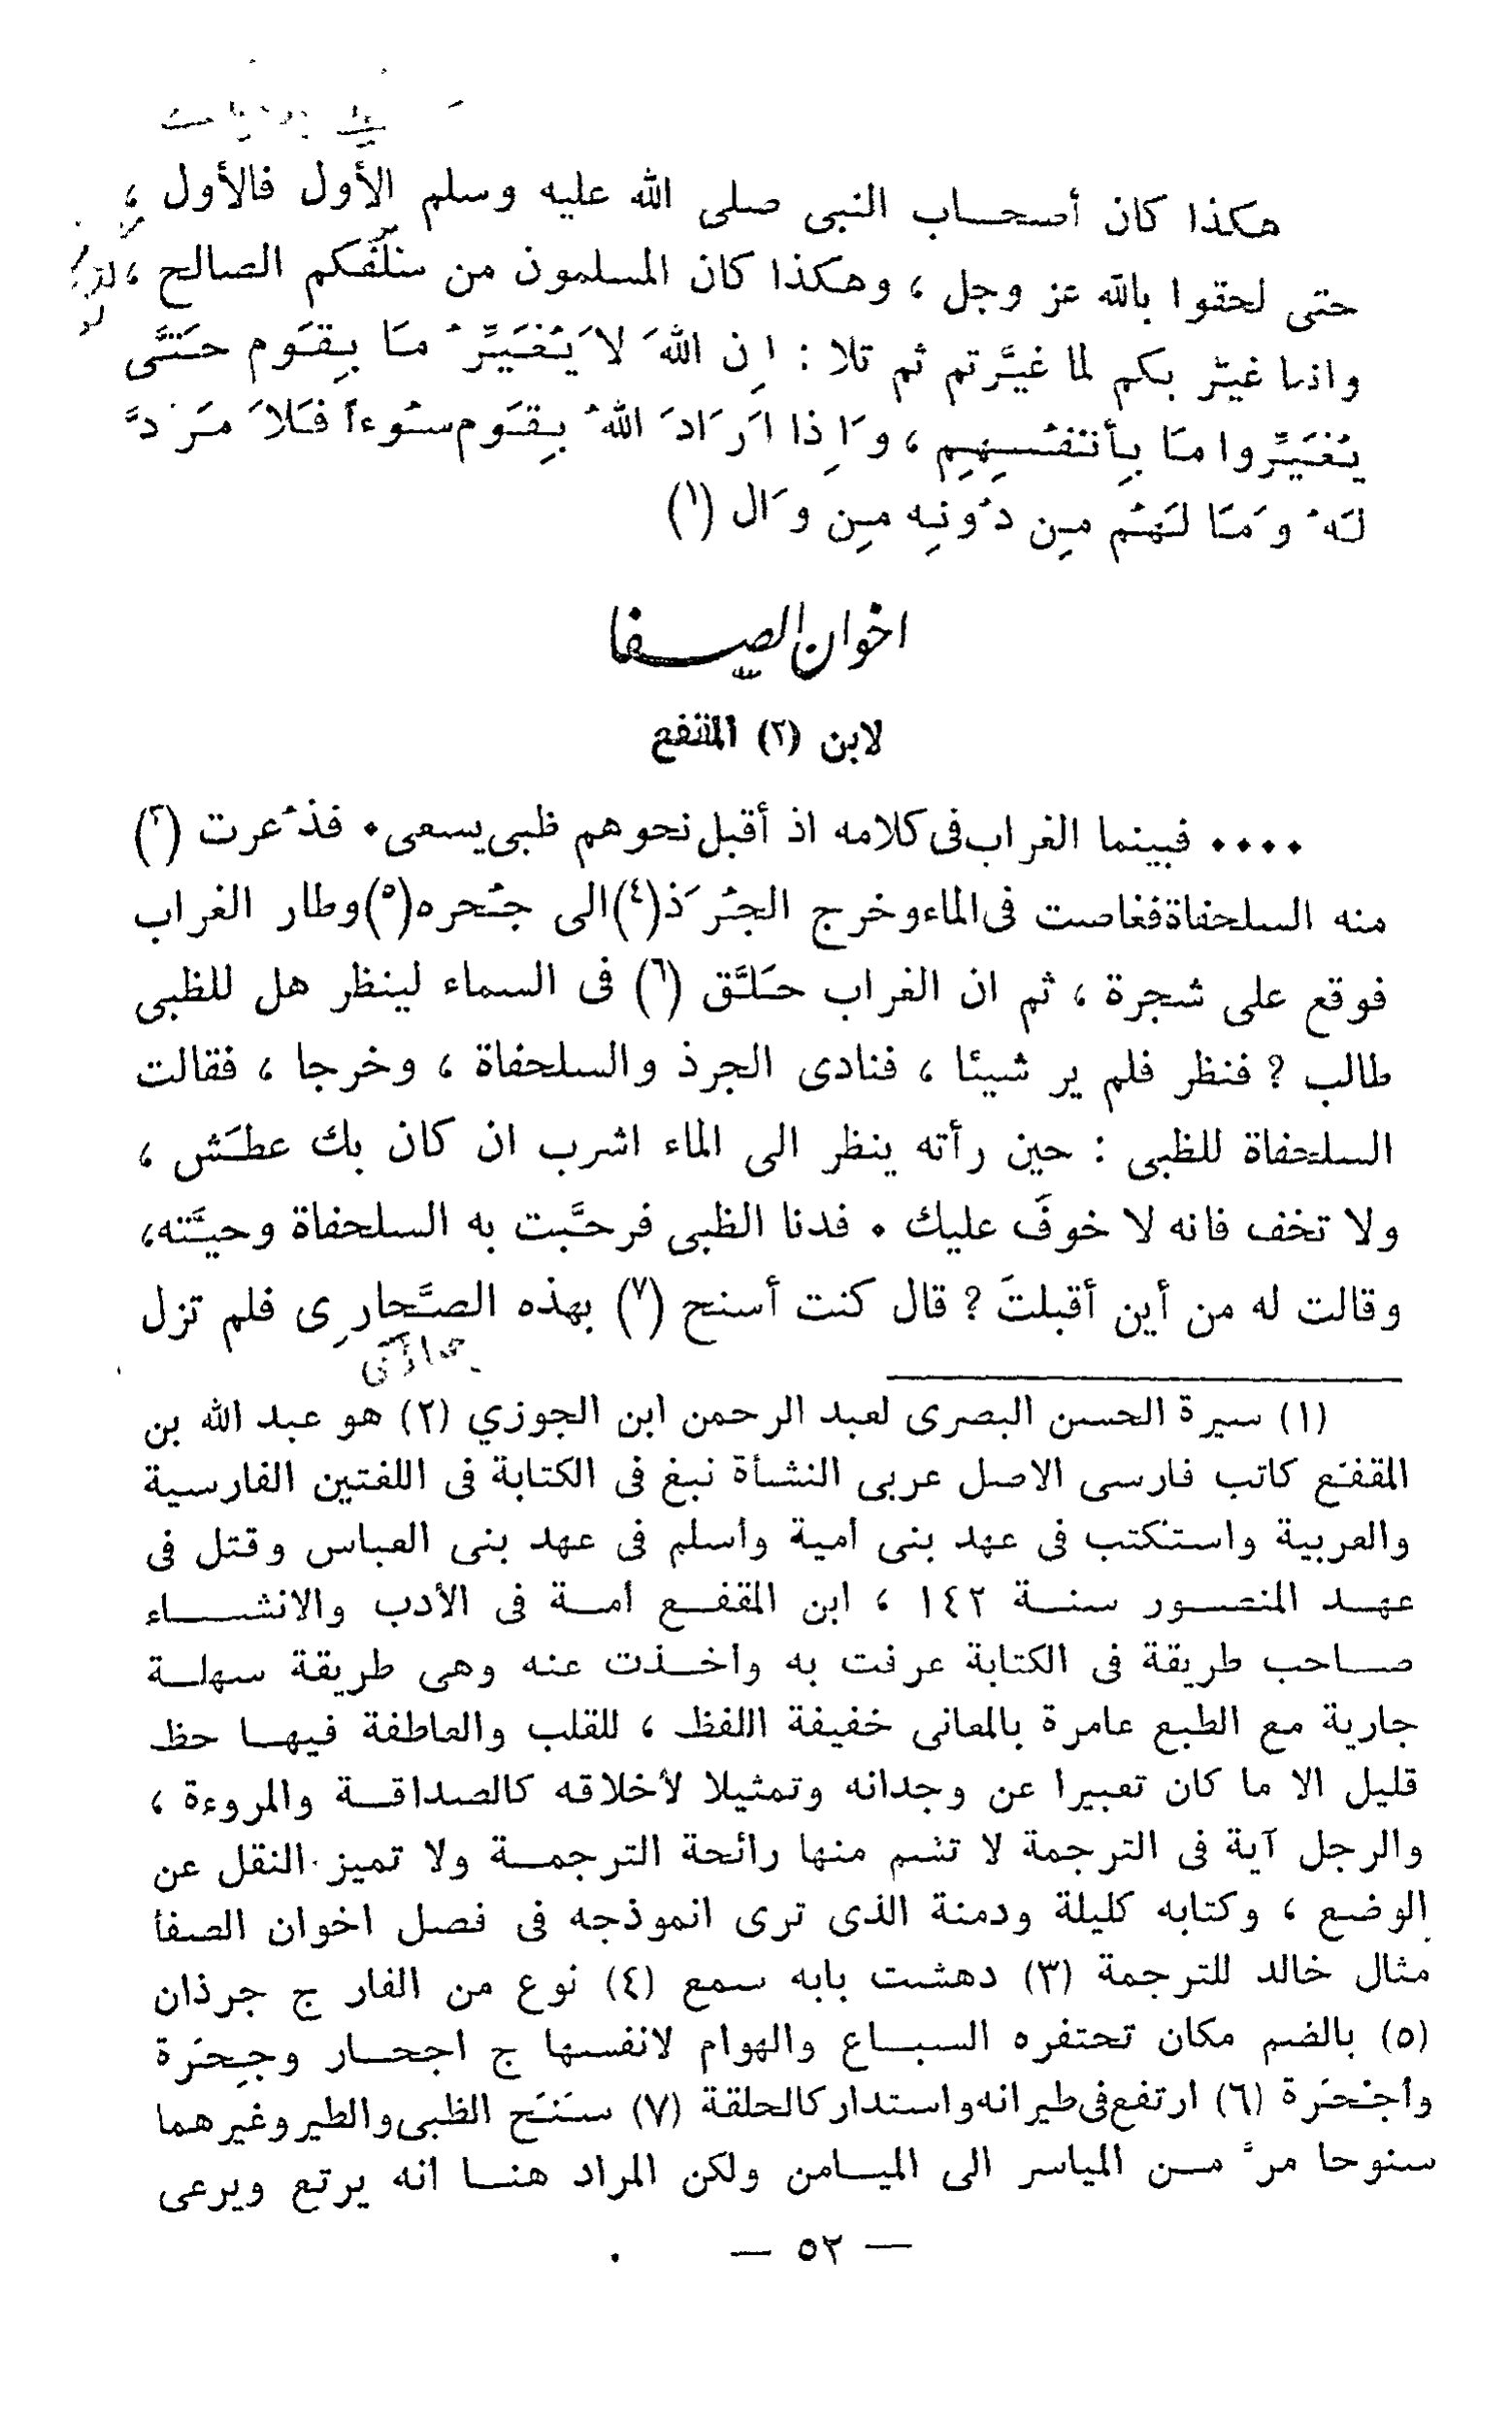 هكذا كان أصحاب النبى صلى الله عليه وسلم الأول فالأول ،
حتى لحقوا بالله عز وجل ، وهكذا كان المسلمون من سَلَفكم الصالح ،
وانما غيّر بكم لما غيَّرتم ثم تلا : اِن اللهَ لاَ يُغَيِّرُ مَا بِقَوم حَتَّى
يُغَيِّروا مَا بِأنفُسِهِم ، وَاِذا اَرَادَ اللهُ بِقَوم سُوءاً فَلاَ مَرَدَّ
لَهُ وَمَا لَهُم مِن دُونِه مِن وَال (١)
اخوان الصفا
لابن (٢) المقفع
.... فبينما الغراب فى كلامه اذ أقبل نحوهم ظبى يسعى. فذُعرت (٣)
منه السلحفاة فغاصت فى الماء وخرج الجُرَذ (٤) الى جُحره (٥) وطار الغراب
فوقع على شجرة ، ثم ان الغراب حَلَّق (٦) فى السماء لينظر هل للظبى
طالب ؟ فنظر فلم ير شيئا ، فنادى الجرذ والسلحفاة ، وخرجا ، فقالت
السلحفاة للظبى : حين رأته ينظر الى الماء اشرب ان كان بك عطَش ،
ولا تخف فانه لا خوفَ عليك . فدنا الظبى فرحَّبت به السلحفاة وحيَّته،
وقالت له من أين أقبلتَ ؟ قال كنت أسنح (٧) بهذه الصَّحارِى فلم تزل
(١) سيرة الحسن البصرى لعبد الرحمن ابن الجوزي (٢) هو عبد الله بن
المقفع كاتب فارسى الاصل عربى النشأة نبغ فى الكتابة فى اللغتين الفارسية
والعربية واستكتب فى عهد بنى أمية وأسلم فى عهد بنى العباس وقتل فى
عهد المنصور سنة ١٤٢ ، ابن المقفع أمة فى الأدب والانشاء
صاحب طريقة فى الكتابة عرفت به وأخذت عنه وهى طريقة سهلة
جارية مع الطبع عامرة بالمعانى خفيفة اللفظ ، للقلب والعاطفة فيها حظ
قليل الا ما كان تعبيرا عن وجدانه وتمثيلا لأخلاقه كالصداقة والمروءة ،
والرجل آية فى الترجمة لا تشم منها رائحة الترجمة ولا تميز النقل عن
الوضع ، وكتابه كليلة ودمنة الذى ترى انموذجه فى فصل اخوان الصفا
مثال خالد للترجمة (٣) دهشت بابه سمع (٤) نوع من الفار ج جرذان
(٥) بالضم مكان تحتفره السباع والهوام لانفسها ج اجحار وجِحَرة
وأجْحَرة (٦) ارتفع فى طيرانه واستدار كالحلقة (٧) سَنَح الظبى والطير وغيرهما
سنوحا مرَّ من المياسر الى الميامن ولكن المراد هنا انه يرتع ويرعى
— ٥٢ —